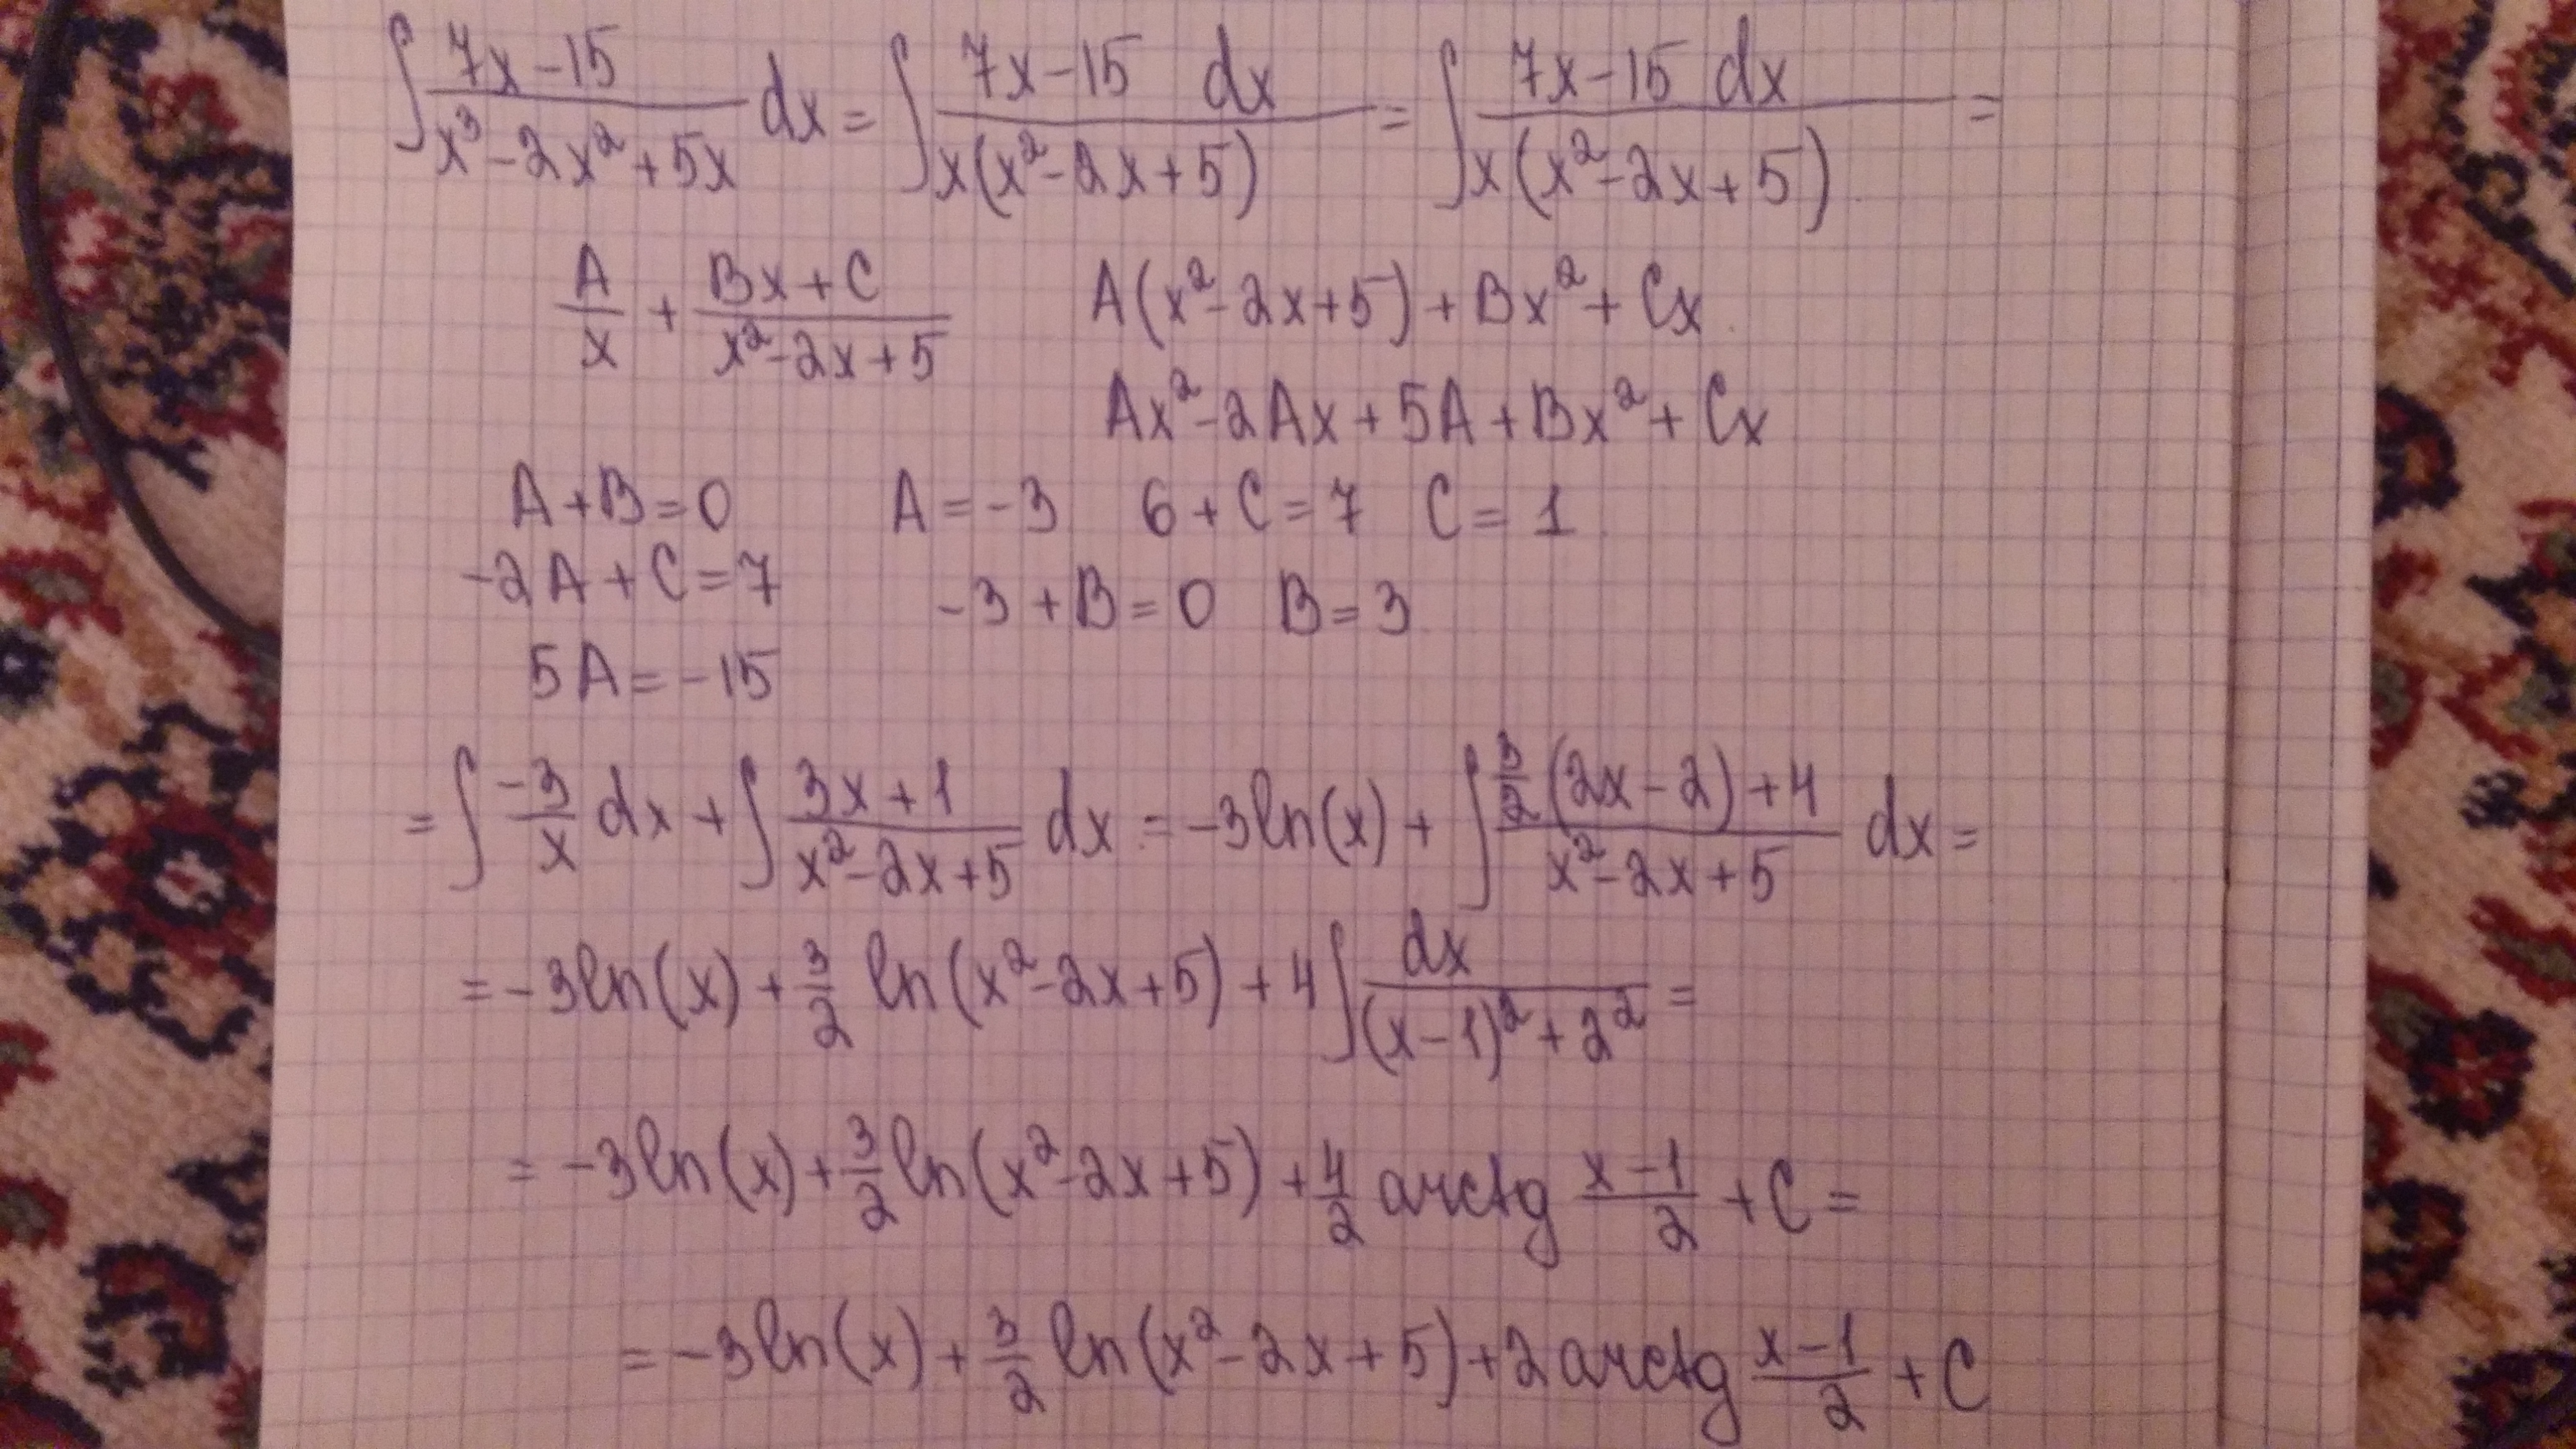 ∫ (7x-15)/(x³-2x²+5x) dx = ∫ (7x-15 dx)/(x(x²-2x+5)) = ∫ (7x-15 dx)/(x(x²-2x+5)) =
A/x + (Bx+C)/(x²-2x+5) A(x²-2x+5)+Bx²+Cx
Ax²-2Ax+5A+Bx²+Cx
A+B=0 A=-3 6+C=7 C=1
-2A+C=7 -3+B=0 B=3
5A=-15
= ∫ -3/x dx + ∫ (3x+1)/(x²-2x+5) dx = -3ln(x) + ∫ (3/2(2x-2)+4)/(x²-2x+5) dx =
= -3ln(x) + 3/2 ln(x²-2x+5) + 4∫ dx/((x-1)²+2²) =
= -3ln(x) + 3/2 ln(x²-2x+5) + 4/2 arctg (x-1)/2 + C =
= -3ln(x) + 3/2 ln(x²-2x+5) + 2 arctg (x-1)/2 + C